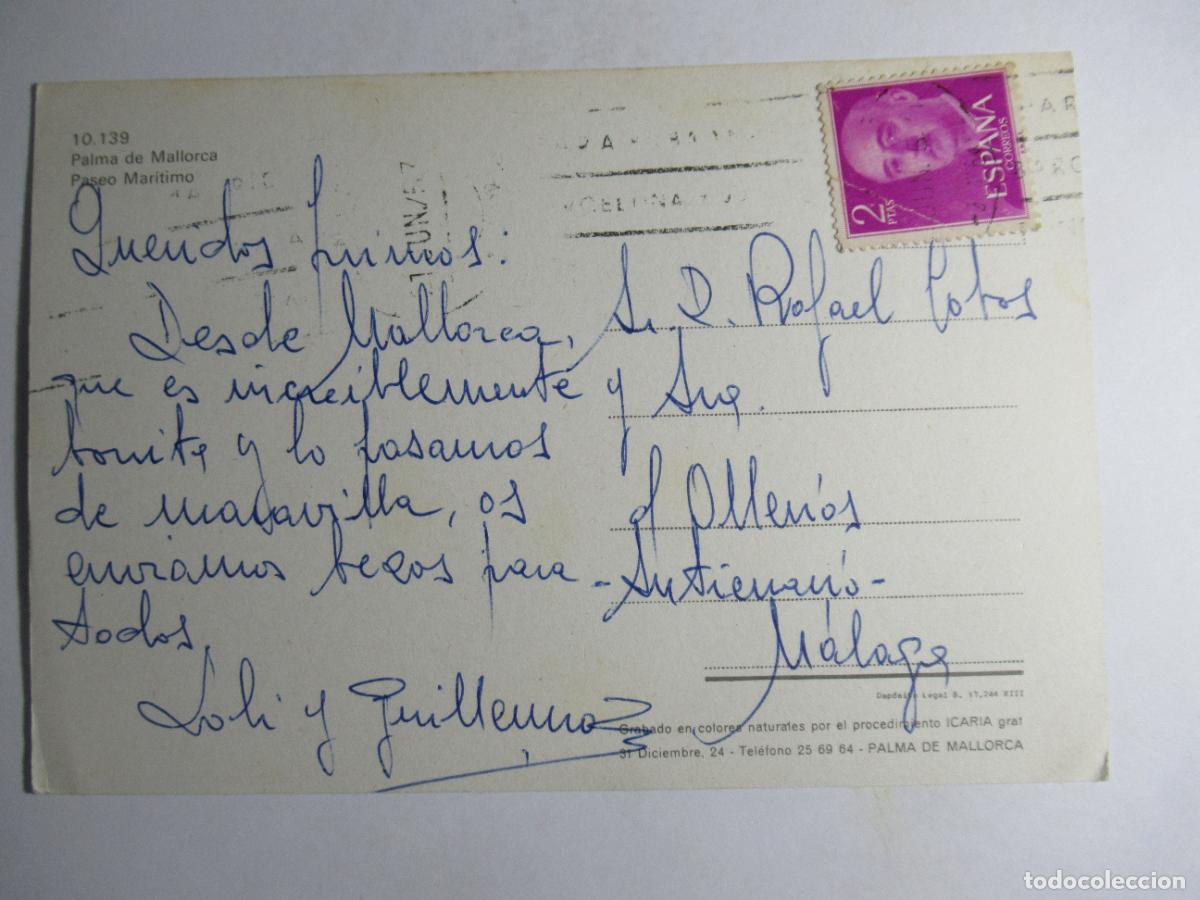 10.139
Palma de Mallorca
Paseo Marítimo
2 PTAS
ESPAÑA
CORREOS
Queridos primos:
Desde Mallorca,
que es increiblemente
bonita y lo pasamos
de maravilla, os
enviamos besos para
todos,
Loli y Guillermo
Sr. D. Rafael Cobos
y Sra.
- Antienario -
Málaga
Depósito Legal B. 17,244 XIII
Grabado en colores naturales por el procedimiento ICARIA graf
31 Diciembre, 24 - Teléfono 25 69 64 - PALMA DE MALLORCA
todocoleccion